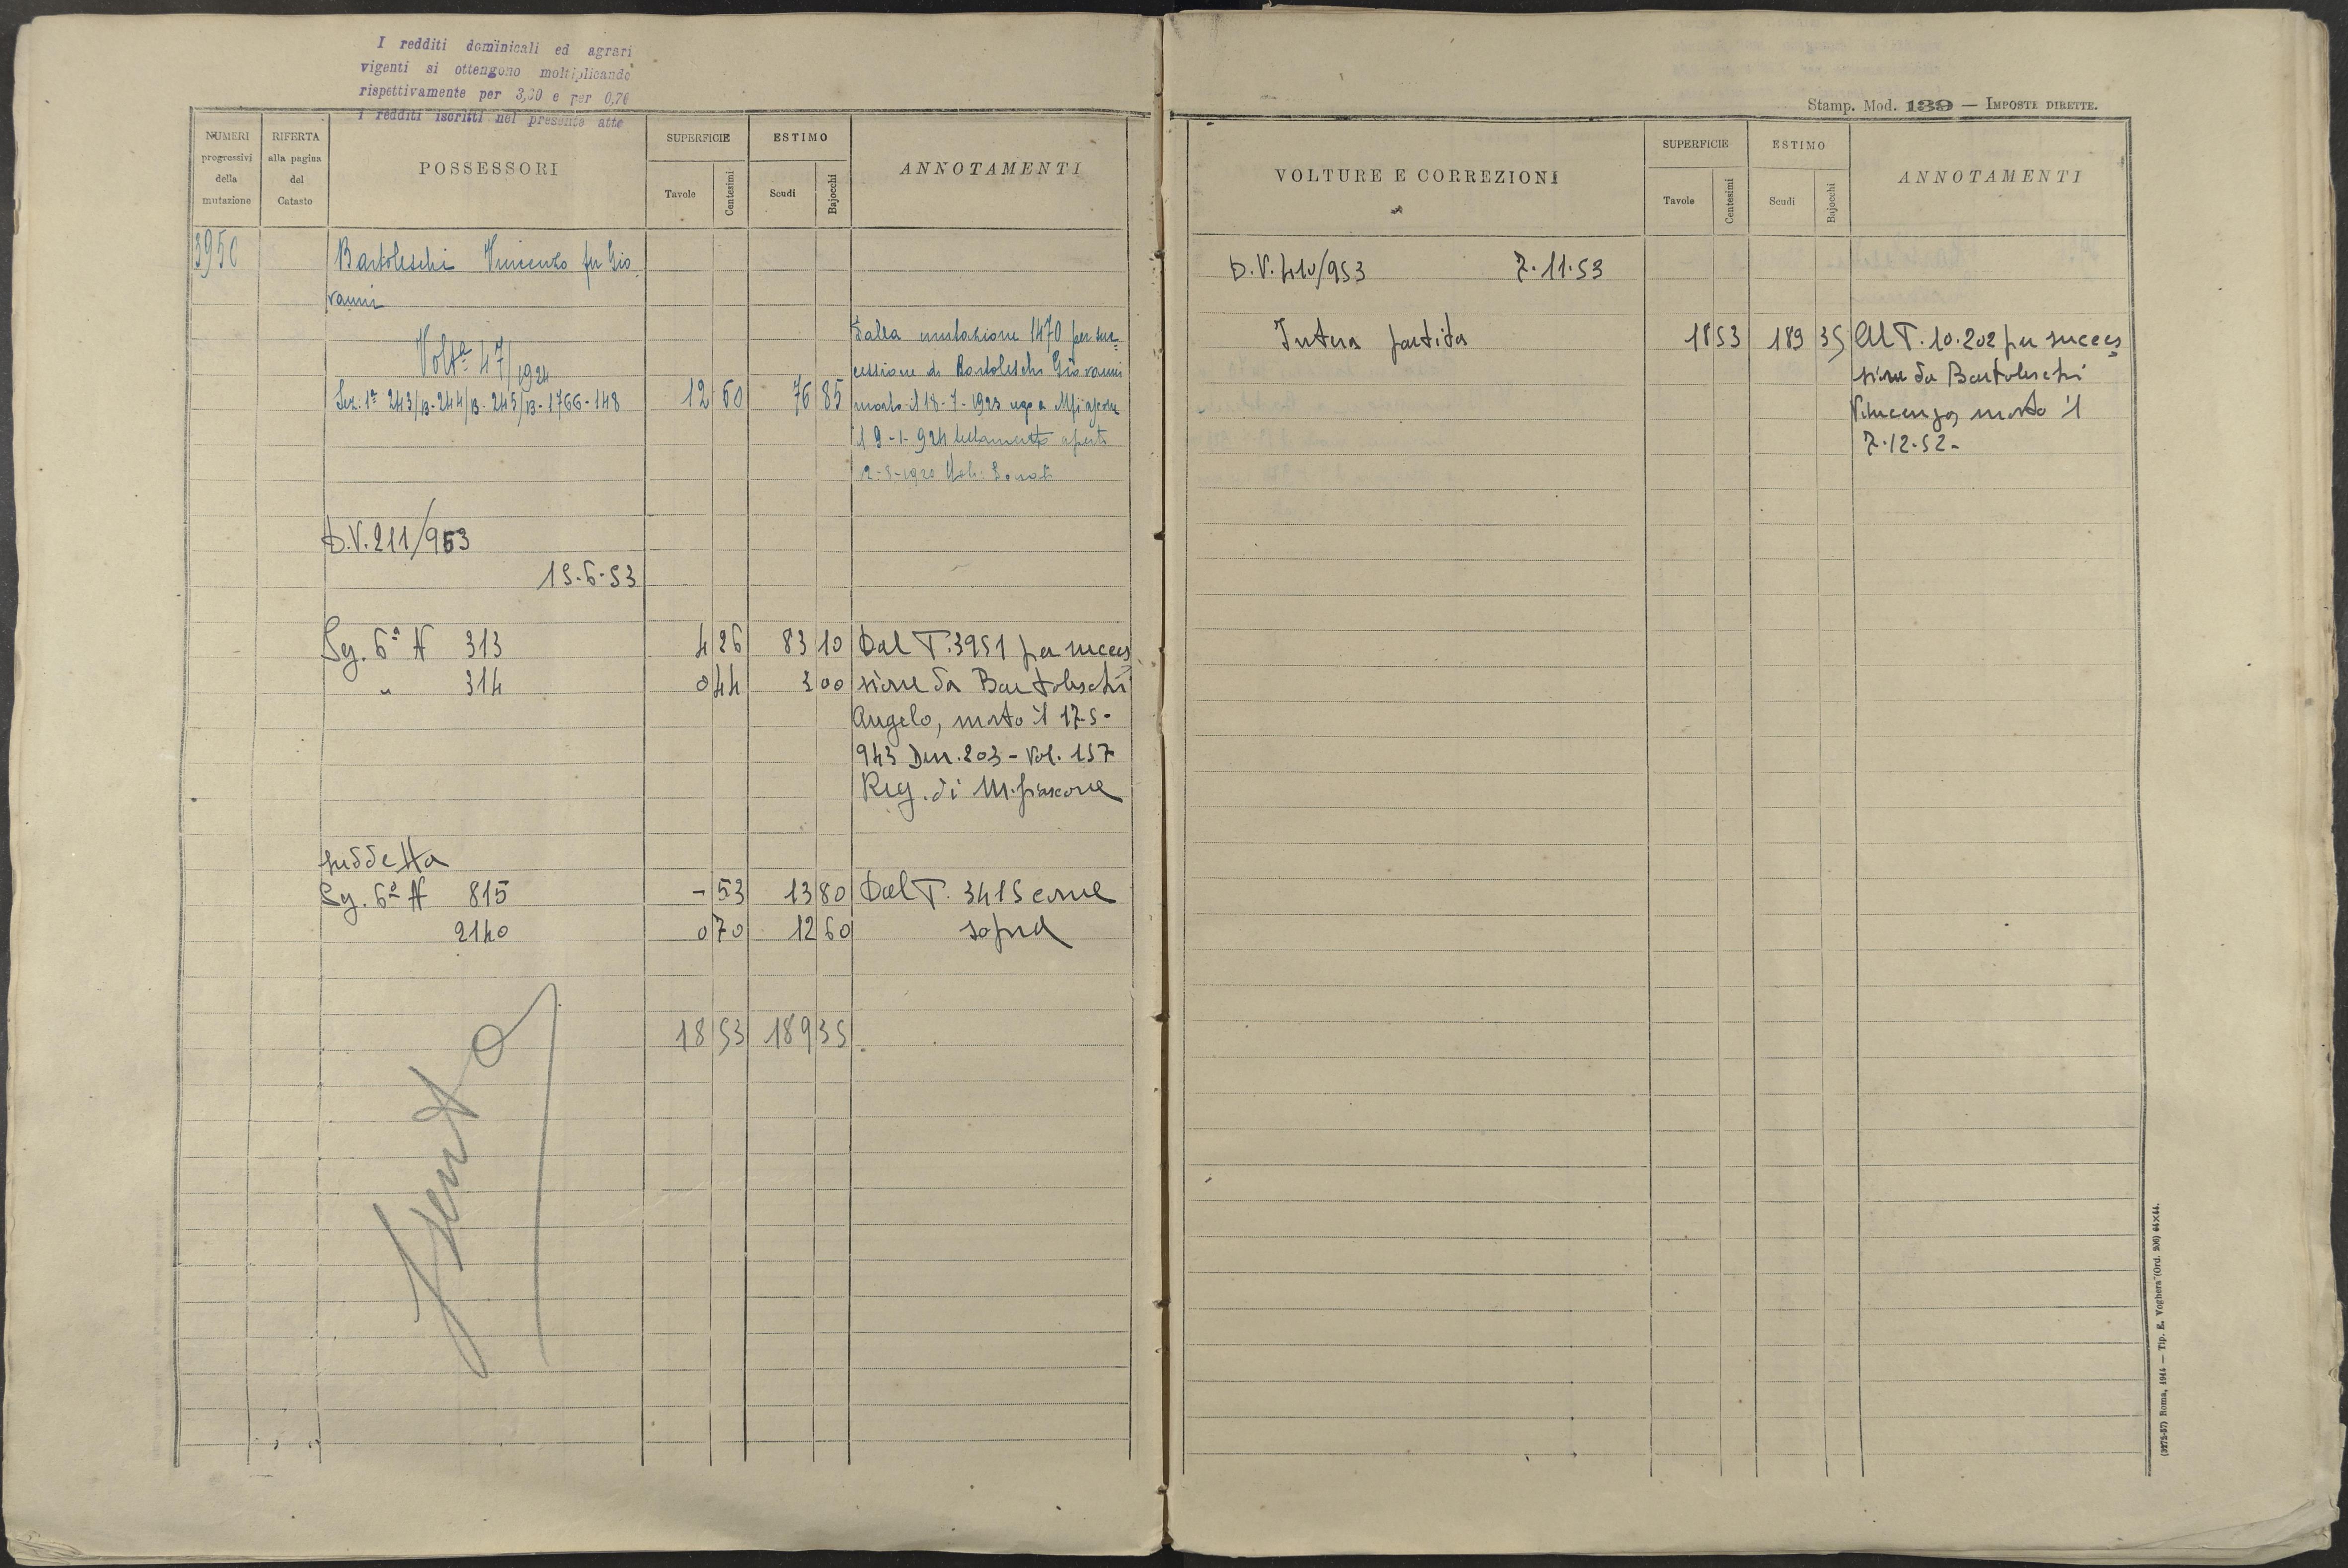 I redditi dominicali ed agrari
vigenti si ottengono moltiplicando
rispettivamente per 3,00 e per 0,70
i redditi iscritti nel presente atto
NUMERI progressivi della mutazione
RIFERTA alla pagina del Catasto
POSSESSORI
SUPERFICIE
Tavole Centesimi
ESTIMO
Scudi Bajocchi
ANNOTAMENTI
3950 Bartoleschi Vincenzo fu Gio
vanni
Dalla mutazione 1470 per suc=
Volta 47/1924
cessione di Bartoleschi Giovanni
Sez. 1a 243/B-244/B-245/B-1766-148 12 60 76 85 morto il 18-7-1923 a Mfiascone
il 9-1-924 testamento aperto
12-8-1920 Donati
D.V. 211/953
15-6-53
Sez. 6a N 313 4 26 83 10 Dal T. 3951 per succes
" 314 0 44 3 00 sione da Bartoleschi
Angelo, morto il 17-5-
943 Den. 203 - Vol. 157
Reg. di M.fiascone
suddetta
Sez. 6a N 815 - 53 13 80 Dal T. 3415 come
2140 0 70 12 60 sopra
18 53 189 35
Stamp. Mod. 139 — IMPOSTE DIRETTE.
VOLTURE E CORREZIONI
SUPERFICIE
Tavole Centesimi
ESTIMO
Scudi Bajocchi
ANNOTAMENTI
D.V. 410/953 7.11.53
Intera partita 18 53 189 35 Al T. 10.202 per succes
sione da Bartoleschi
Vincenzo, morto il
7.12.52-
(3275-57) Roma, 1914 — Tip. E. Voghera (Ord. 206) 64×44.